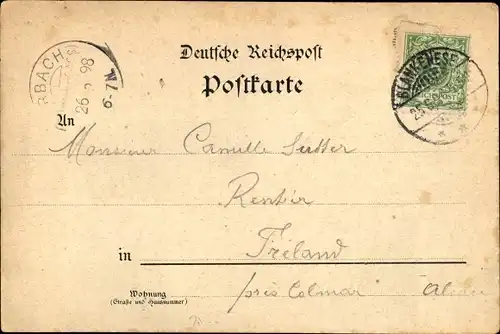 Deutsche Reichspost
Postkarte
RBACH
26 98
6-7N
BLANKENESE
REICHSPOST
An
Monsieur Camille Sutter
Rentier
in Fréland
Wohnung
(Straße und Hausnummer)
près Colmar Alsace